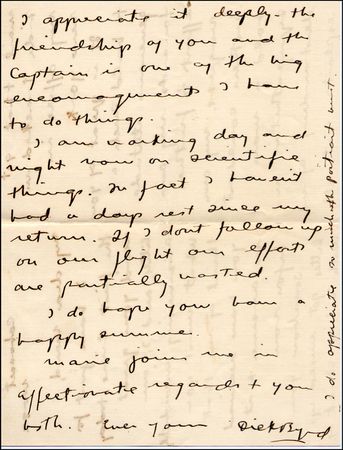 I appreciate it deeply. the
friendship of you and the
Captain is one of the big
encouragements I have
to do things.
I am working day and
night now on scientific
things. In fact I havent
had a days rest since my
return. If I dont follow up
on our flight our efforts
are partially wasted.
I do hope you have a
happy summer.
Marie joins me in
affectionate regards to you
both. Ever yours Dick Byrd
I do appreciate so much portrait